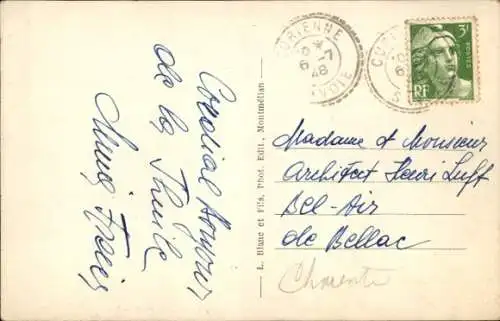 Cordial Bonjour
de la Thuile
L. Blanc et Fils, Phot. Edit., Montmélian
ORIENNE
6 -7
48
VOIE
3F
POSTES
RF
Madame et Monsieur
Architect Henri Luff
Bel-Air
de Bellac
Charente